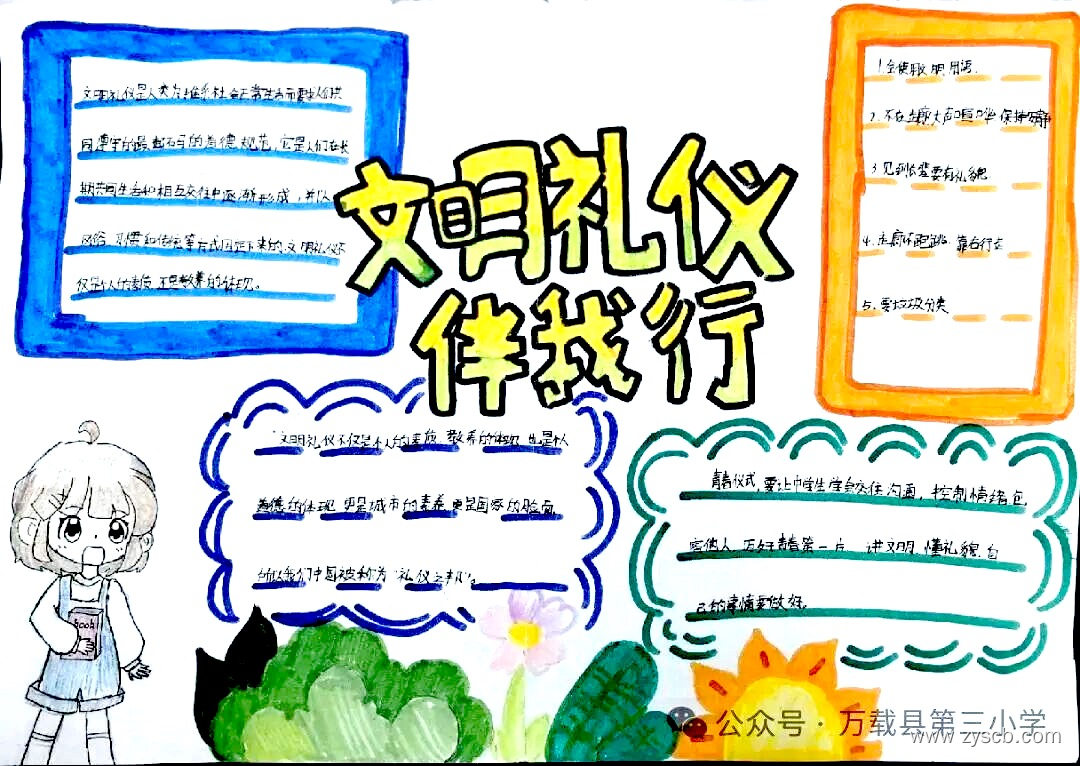 文明礼仪
伴我行
文明礼仪是人类为维系社会正常生活而要求人们共
同遵守的最起码的道德规范，它是人们在长
期共同生活和相互交往中逐渐形成，并以
风俗、习惯和传统等方式固定下来的,文明礼仪不
仅是个人的素质,
教养的体现。
1.全使用文明用语.
2.不在走廊大声喧哗,保持安静
3.见到长辈要有礼貌
4.走廊不跑跳、靠右行走
5.要垃圾分类
文明礼仪不仅是个人的素质、教养的体现,也是个人
道德的体现,更是城市的素养,更是国家的脸面,
所以我们中国被称为"礼仪之邦"。
仪式,要让中学生学会交往沟通，控制情绪包
容他人,
讲文明、懂礼貌,自
己的事情要做好。
book
公众号·万载县第三小学
www.zyscb.com